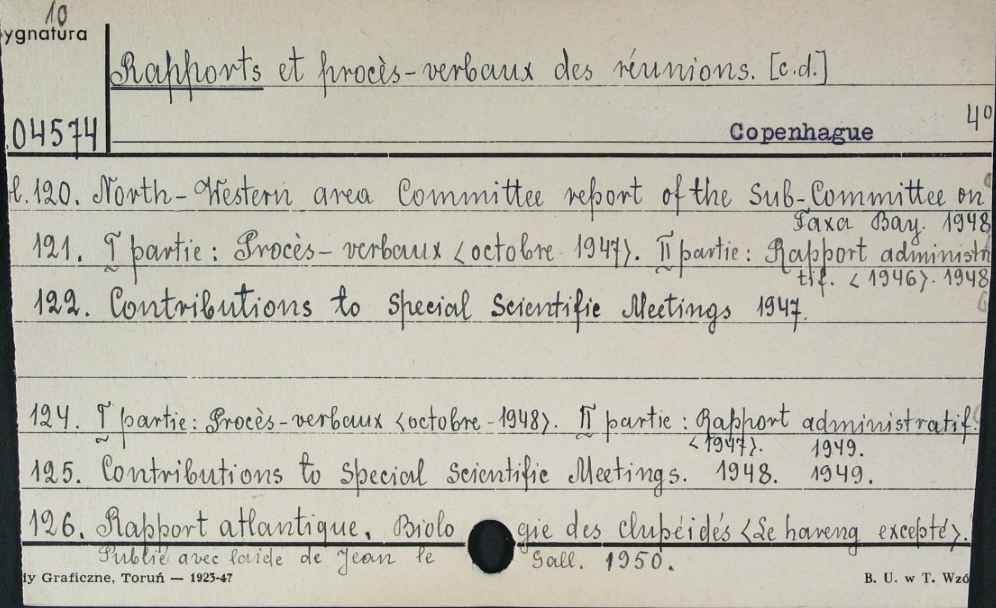 10
ygnatura
Rapports et procès-verbaux des réunions. [c.d.]
04574
Copenhague
4º
120. North-Western area Committee report of the Sub-Committee on
Faxa Bay. 1948
121. I partie: Procès-verbaux <octobre 1947>. II partie: Rapport administra
tif. <1946>. 1948
122. Contributions to Special Scientific Meetings 1947.
124. I partie: Procès-verbaux <octobre-1948>. II partie: Rapport administratif.
<1947>. 1949.
125. Contributions to Special Scientific Meetings. 1948. 1949.
126. Rapport atlantique. Biologie des clupéidés <Le hareng excepté>.
Publié avec l'aide de Jean le Gall. 1950.
ly Graficzne, Toruń — 1923-47
B. U. w T. Wzó